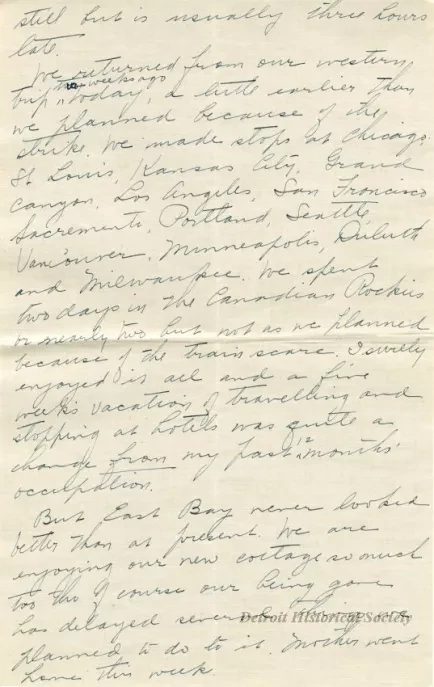 still but is usually three hours
late.
We returned from our western
two weeks ago
trip today, a little earlier than
we planned because of the
strike. We made stops at Chicago
St Louis, Kansas City, Grand
Canyon, Los Angeles, San Francisco
Sacremento, Portland, Seattle,
Vancouver, Minneapolis, Duluth
and Milwaukee. We spent
two days in the Canadian Rockies
or nearly two but not as we planned
because of the train scare. I surely
enjoyed it all and a five
weeks vacation of travelling and
stopping at hotels was quite a
change from my past 12 months'
occupation.
But East Bay never looked
better than at present. We are
enjoying our new cottage so much
too tho of course our being gone
has delayed several things we
Detroit Historical Society
planned to do to it. Mother went
home this week.